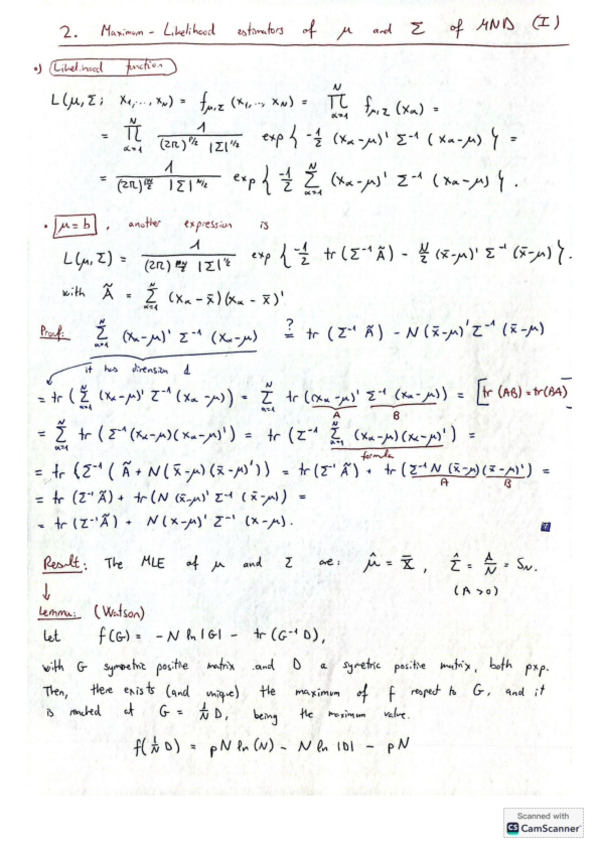 2. Maximum-Likelihood estimators of μ and Σ of MND (I)
•) Likelihood function
L(μ,Σ; x₁,...,x_N) = f_{μ,Σ}(x₁,...,x_N) = ∏_{α=1}^N f_{μ,Σ}(x_α) =
= ∏_{α=1}^N 1/((2π)^{p/2} |Σ|^{1/2}) exp{ -1/2 (x_α-μ)' Σ⁻¹ (x_α-μ) } =
= 1/((2π)^{pN/2} |Σ|^{N/2}) exp{ -1/2 Σ_{α=1}^N (x_α-μ)' Σ⁻¹ (x_α-μ) }.
• μ=b, another expression is
L(μ,Σ) = 1/((2π)^{pN/2} |Σ|^{1/2}) exp{ -1/2 tr(Σ⁻¹ Ã) - N/2 (x̄-μ)' Σ⁻¹ (x̄-μ) }.
with Ã = Σ_{α=1}^N (x_α-x̄)(x_α-x̄)'
Proof: Σ_{α=1}^N (x_α-μ)' Σ⁻¹ (x_α-μ) =? tr(Σ⁻¹ Ã) - N(x̄-μ)' Σ⁻¹ (x̄-μ)
it has dimension 1
= tr(Σ_{α=1}^N (x_α-μ)' Σ⁻¹ (x_α-μ)) = Σ_{α=1}^N tr((x_α-μ)' Σ⁻¹ (x_α-μ)) = [tr(AB)=tr(BA)]
A B
= Σ_{α=1}^N tr(Σ⁻¹(x_α-μ)(x_α-μ)') = tr(Σ⁻¹ Σ_{α=1}^N (x_α-μ)(x_α-μ)') =
formula
= tr(Σ⁻¹(Ã + N(x̄-μ)(x̄-μ)')) = tr(Σ⁻¹Ã) + tr(Σ⁻¹N(x̄-μ)(x̄-μ)') =
A B
= tr(Σ⁻¹Ã) + tr(N(x̄-μ)' Σ⁻¹ (x̄-μ)) =
= tr(Σ⁻¹Ã) + N(x-μ)' Σ⁻¹ (x-μ).
Result: The MLE of μ and Σ are: μ̂ = x̄, Σ̂ = A/N = S_N.
(A >0)
Lemma: (Watson)
Let f(G) = -N ln|G| - tr(G⁻¹D),
with G symmetric positive matrix and D a symetric positive matrix, both pxp.
Then, there exists (and unique) the maximum of f respect to G, and it
is reached at G = 1/N D, being the maximum value.
f(1/N D) = pN ln(N) - N ln|D| - pN
Scanned with
CS CamScanner